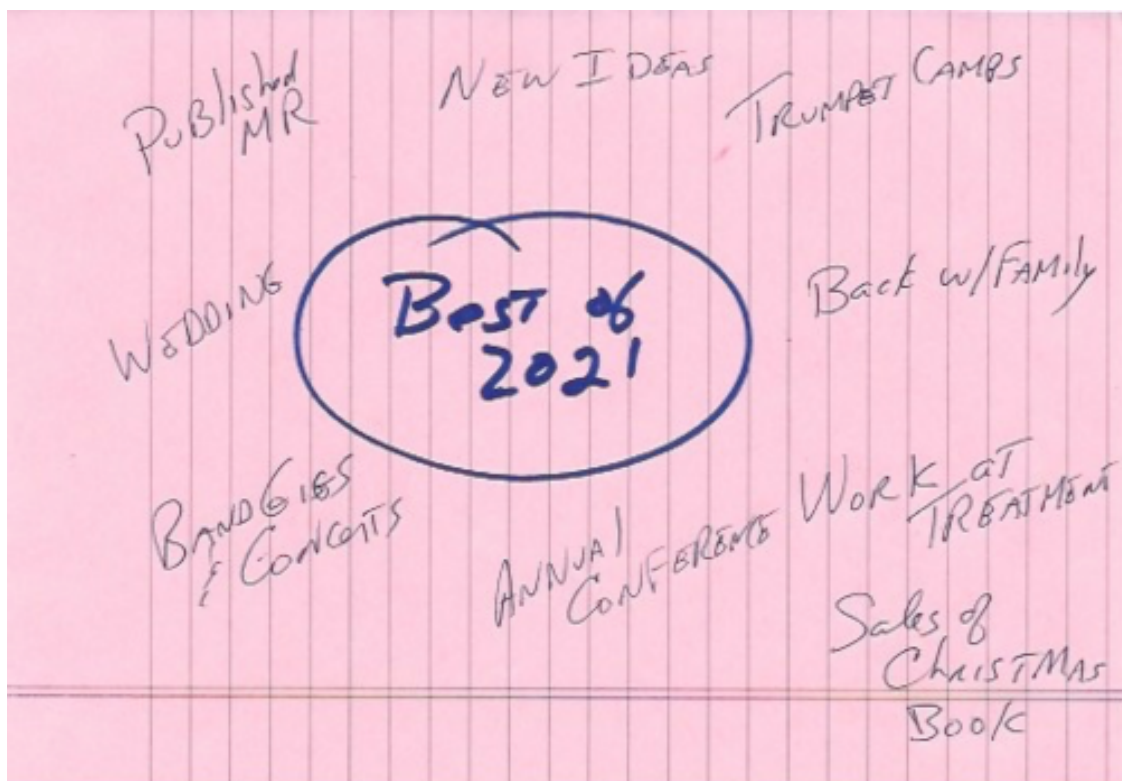 Published
MR
New Ideas
Trumpet Camps
Wedding
Best of
2021
Back w/Family
Band Gigs
& Concerts
Annual
Conference
Work at
Treatment
Sales of
Christmas
Book